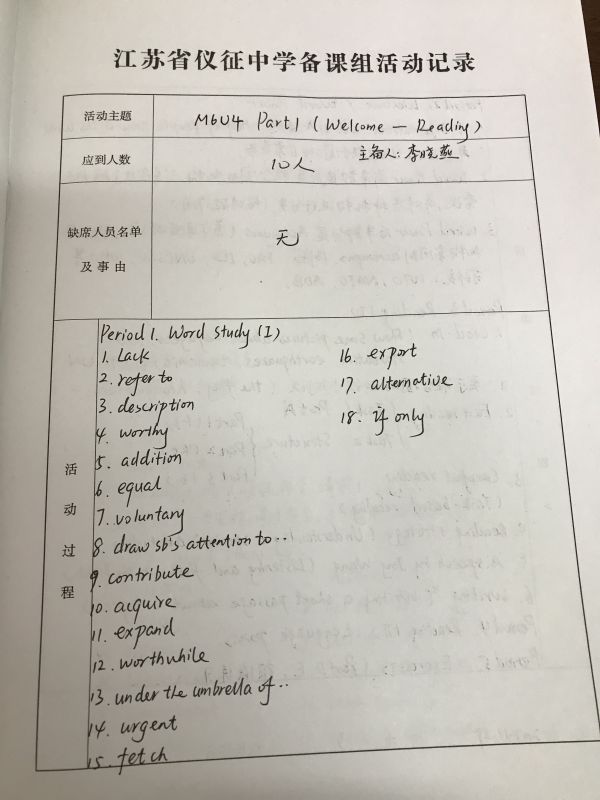 江苏省仪征中学备课组活动记录
活动主题 M6U4 Part1 (Welcome — Reading)
应到人数 10人 主备人: 李晓燕
缺席人员名单及事由 无
活动过程
Period 1. Word Study (I)
1. Lack
2. refer to
3. description
4. worthy
5. addition
6. equal
7. voluntary
8. draw sb's attention to..
9. contribute
10. acquire
11. expand
12. worthwhile
13. under the umbrella of..
14. urgent
15. fetch
16. export
17. alternative
18. if only